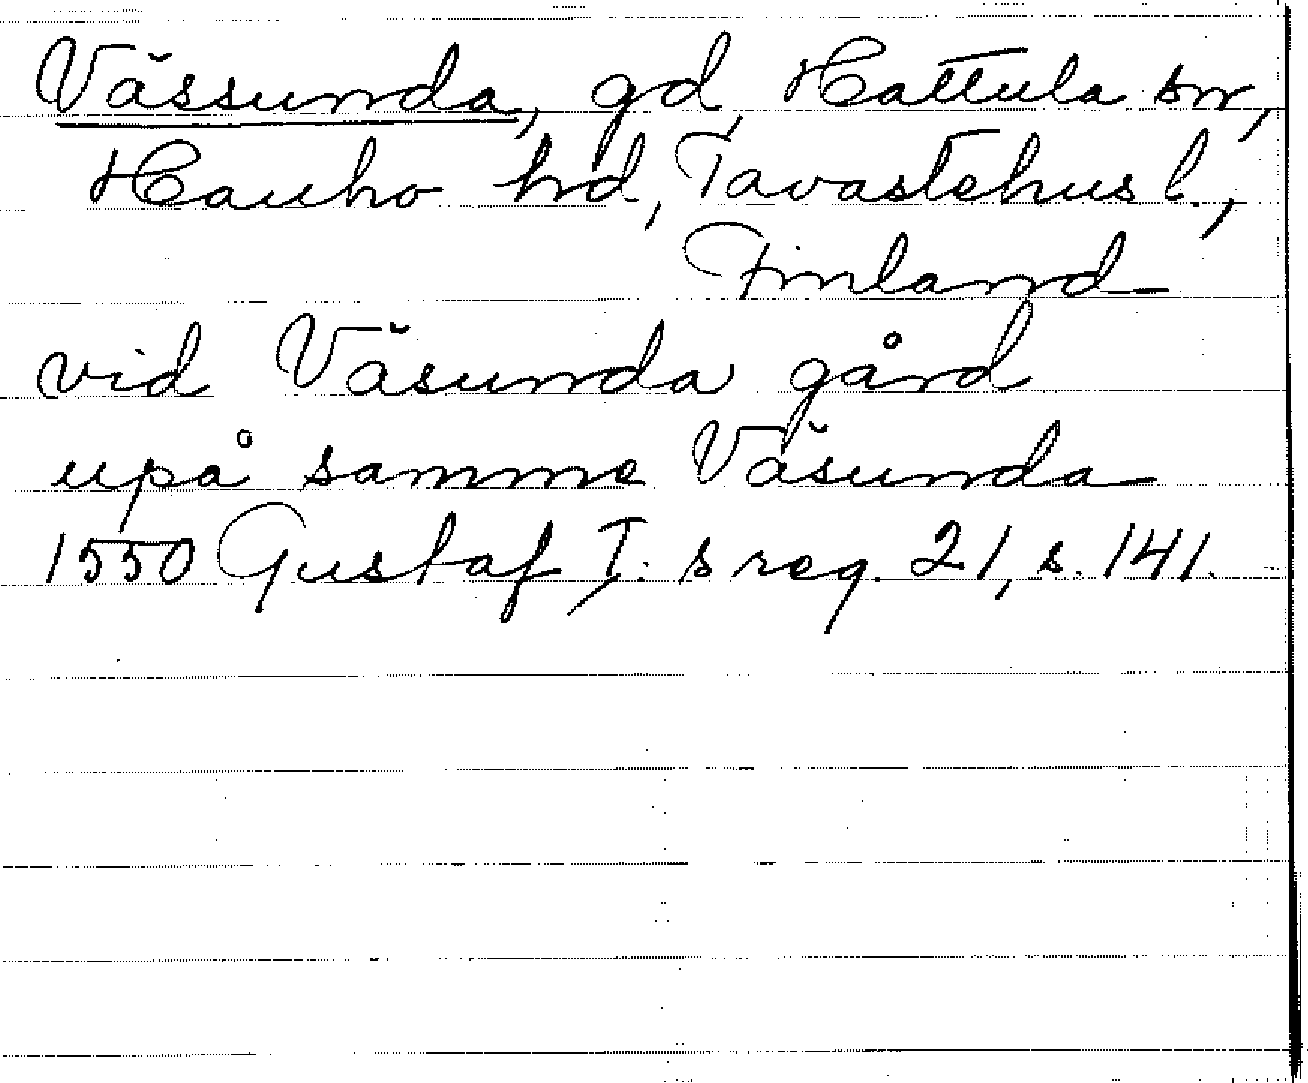 Vässunda, gd, Hattula sn,
Hauho hd, Tavastehus l.,
Finland
vid Väsunda gård
upå samme Väsunda
1550 Gustaf I. s reg. 21, s. 141.